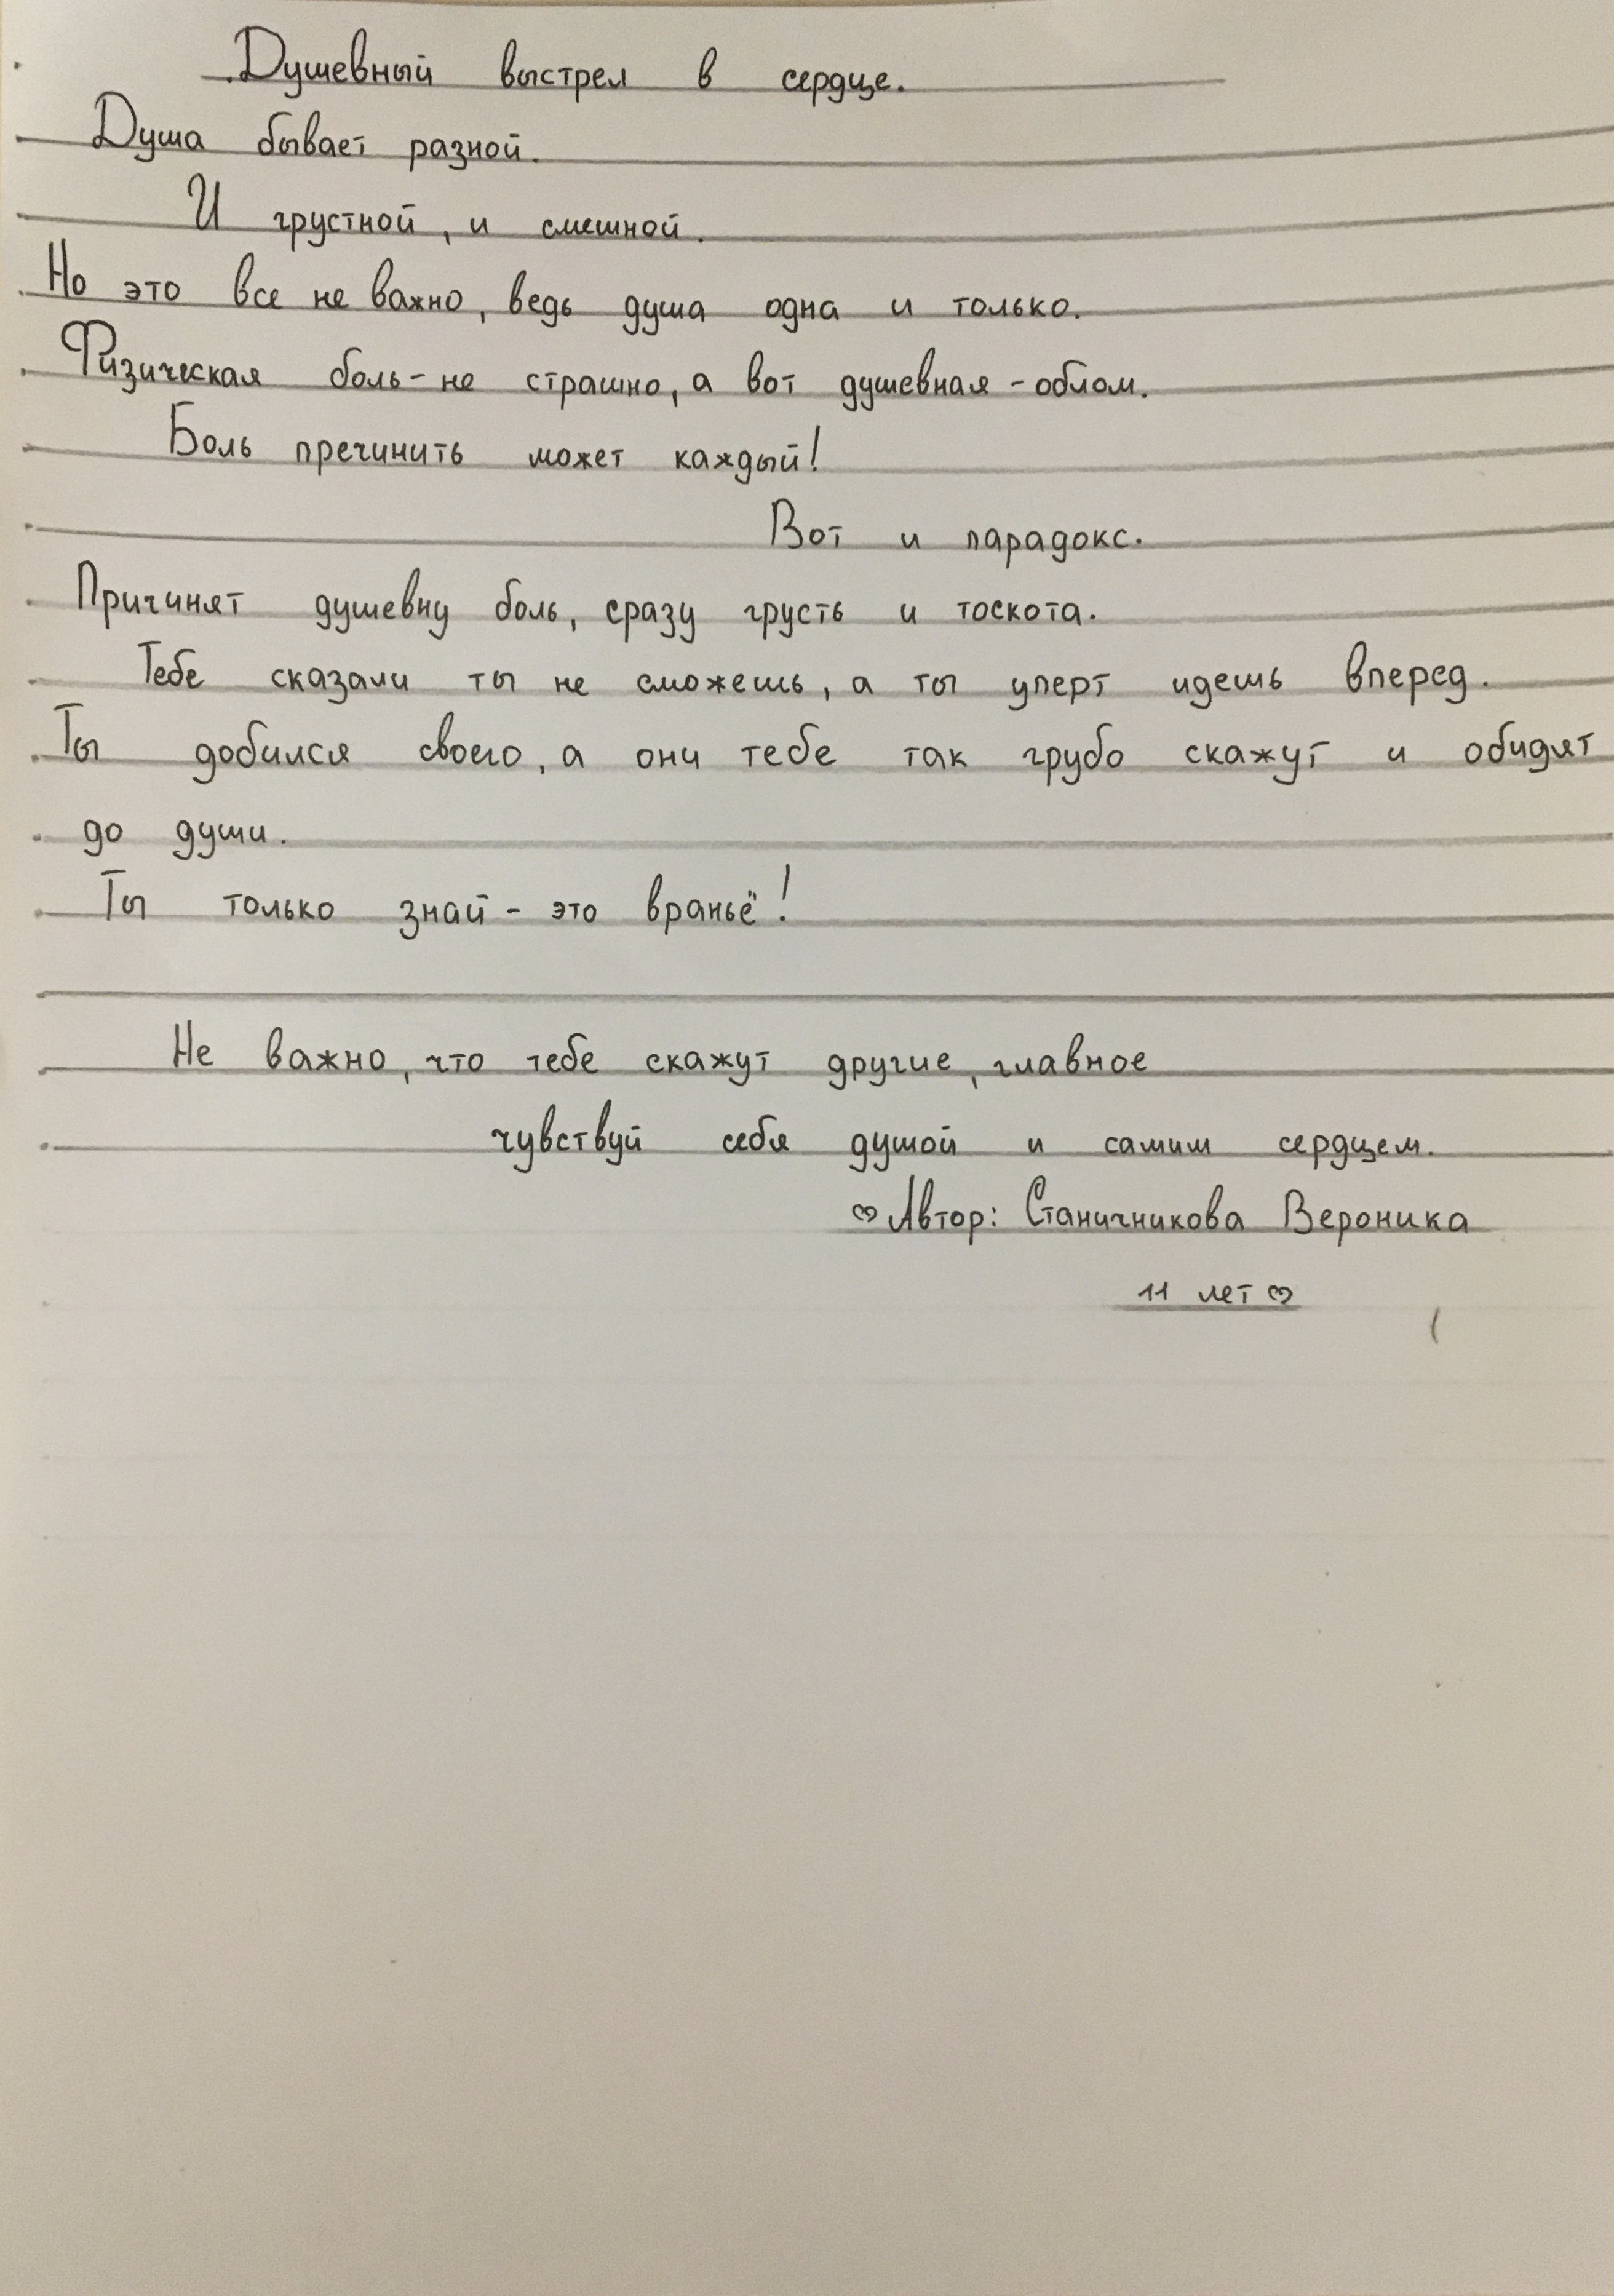 Душевный выстрел в сердце.
Душа бывает разной.
И грустной, и смешной.
Но это все не важно, ведь душа одна и только.
Физическая боль - не страшно, а вот душевная - облом.
Боль пречинить может каждый!
Вот и парадокс.
Причинят душевну боль, сразу грусть и тоскота.
Тебе сказали ты не сможешь, а ты уперт идешь вперед.
Ты добился своего, а они тебе так грубо скажут и обидят
до души.
Ты только знай - это враньё!
Не важно, что тебе скажут другие, главное
чувствуй себя душой и самим сердцем.
♡ Автор: Станичникова Вероника
11 лет ♡